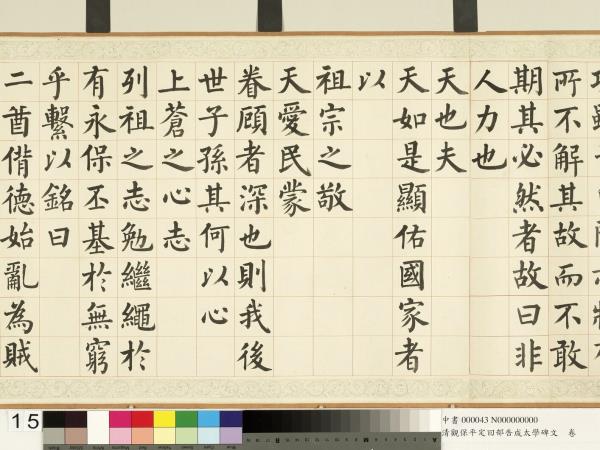 所不解其故而不敢
期其必然者故曰非
人力也
天也夫
天如是顯佑國家者
以
祖宗之敬
天愛民蒙
眷顧者深也則我後
世子孫其何以心
上蒼之心志
列祖之志勉繼繩於
有永保丕基於無窮
乎繫以銘曰
二酋偝德始亂為賊
15
中書 000043 N000000000
清觀保平定回部告成太學碑文 卷